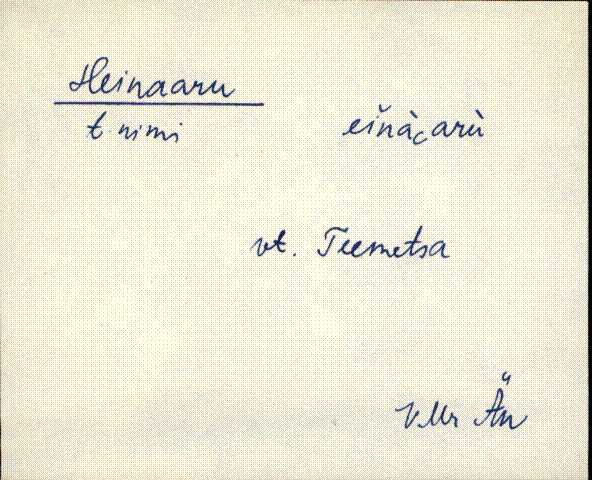 Heinaaru
t. nimi eĭnà˛arù
vt. Teemetsa
VMr Än